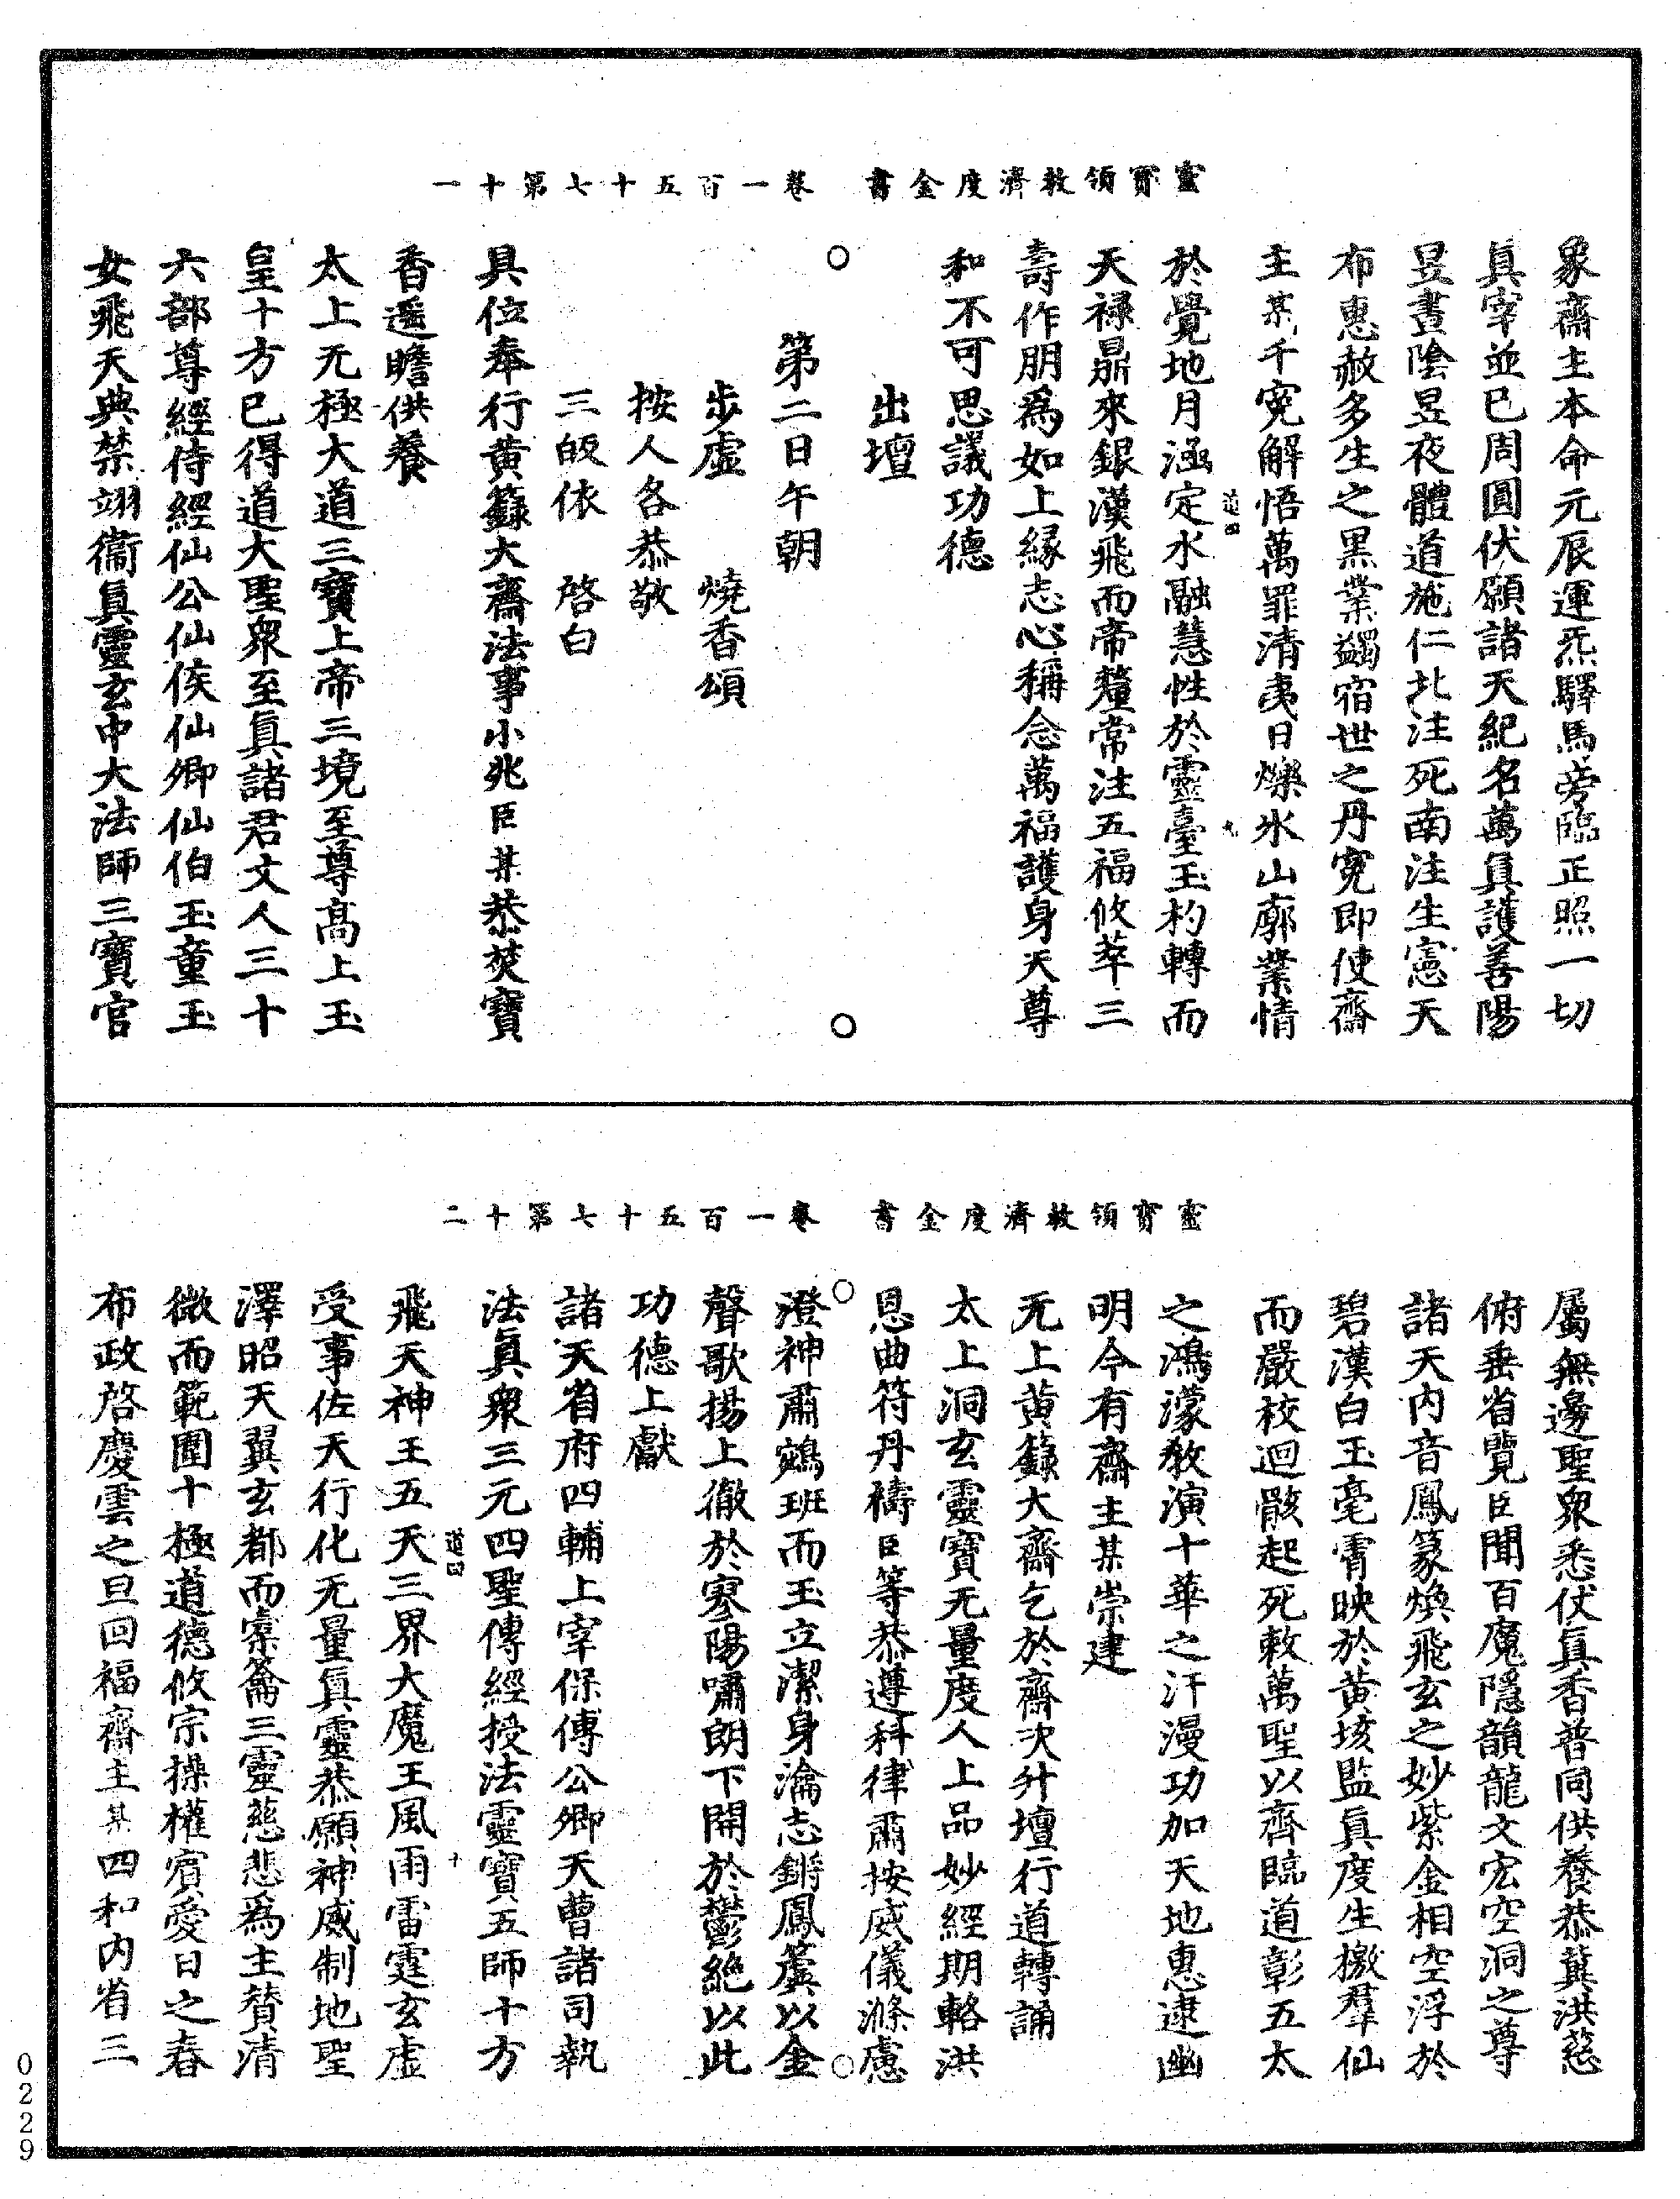 靈寳領教濟度金書　卷一百五十七第十一
象齋主本命元辰運炁驛馬旁臨正照一切
眞宰並已周圓伏願諸天紀名萬眞護善陽
昱晝陰昱夜體道施仁北注死南注生憲天
布惠赦多生之黒業蠲宿世之丹寃即使齋
主某千寃解悟萬罪清夷日爍氷山廓業情
道四
九
於覺地月涵定水融慧性於靈臺玉杓轉而
天禄鼎來銀漢飛而帝釐常注五福攸萃三
壽作朋爲如上縁志心稱念萬福護身天尊
和不可思議功德
出壇
第二日午朝
步虚　燒香頌
按人各恭敬
三皈依　啓白
具位奉行黄籙大齋法事小兆臣某恭焚寳
香遥瞻供養
太上无極大道三寳上帝三境至尊高上玉
皇十方已得道大聖衆至眞諸君丈人三十
六部尊經侍經仙公仙侯仙卿仙伯玉童玉
女飛天典禁翊衞眞靈玄中大法師三寳官
靈寳領教濟度金書　卷一百五十七第十二
屬無邊聖衆悉仗眞香普同供養恭蘄洪慈
俯垂省覽臣聞百魔隱韻龍文宏空洞之尊
諸天内音鳳篆焕飛玄之妙紫金相空浮於
碧漢白玉毫霄映於黄垓監眞度生撽羣仙
而嚴校迴骸起死敕萬聖以齊臨道彰五太
之鴻濛教演十華之汗漫功加天地惠逮幽
明今有齋主某崇建
无上黄籙大齋乞於齋次升壇行道轉誦
太上洞玄靈寳无量度人上品妙經期輅洪
恩曲符丹禱臣等恭遵科律肅按威儀滌慮
澄神肅鵷班而玉立潔身瀹志鏘鳳簴以金
聲歌揚上徹於寥陽嘯朗下開於鬱絶以此
功德上獻
諸天省府四輔上宰保傅公卿天曹諸司執
法眞衆三元四聖傳經授法靈寳五師十方
道四
十
飛天神王五天三界大魔王風雨雷霆玄虚
受事佐天行化无量眞靈恭願神威制地聖
澤昭天翼玄都而槖籥三靈慈悲爲主賛清
微而範圍十極道德攸宗操權賓愛日之春
布政啓慶雲之旦回福齋主某四和内省三
0229